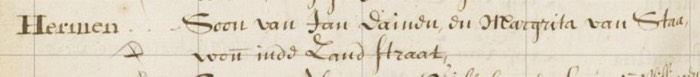 Hermen . . Soon van Jan Damen, en Margrita van Staa,
won̄ inde Zand straat,